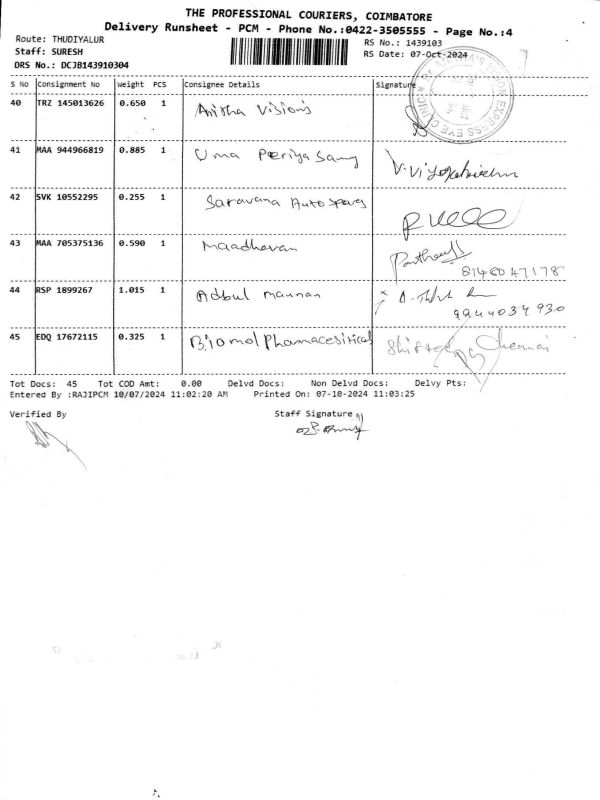 THE PROFESSIONAL COURIERS, COIMBATORE
Delivery Runsheet - PCM - Phone No.:0422-3505555 - Page No.:4
Route: THUDIYALUR
RS No.: 1439103
Staff: SURESH
RS Date: 07-Oct-2024
DRS No.: DCJB143910304
S No Consignment No Weight PCS Consignee Details Signature
40 TRZ 145013626 0.650 1 Anitha Visions
41 MAA 944966819 0.885 1 Uma Periyasamy
42 SVK 10552295 0.255 1 Saravana Auto Spares
43 MAA 705375136 0.590 1 Maadhavan
8146047178
44 RSP 1899267 1.015 1 Adbul mannan
9944034930
45 EDQ 17672115 0.325 1 Biomol Pharmacesitical Shifted Chennai
Tot Docs: 45 Tot COD Amt: 0.00 Delvd Docs: Non Delvd Docs: Delvy Pts:
Entered By :RAJIPCM 10/07/2024 11:02:20 AM Printed On: 07-10-2024 11:03:25
Verified By Staff Signature